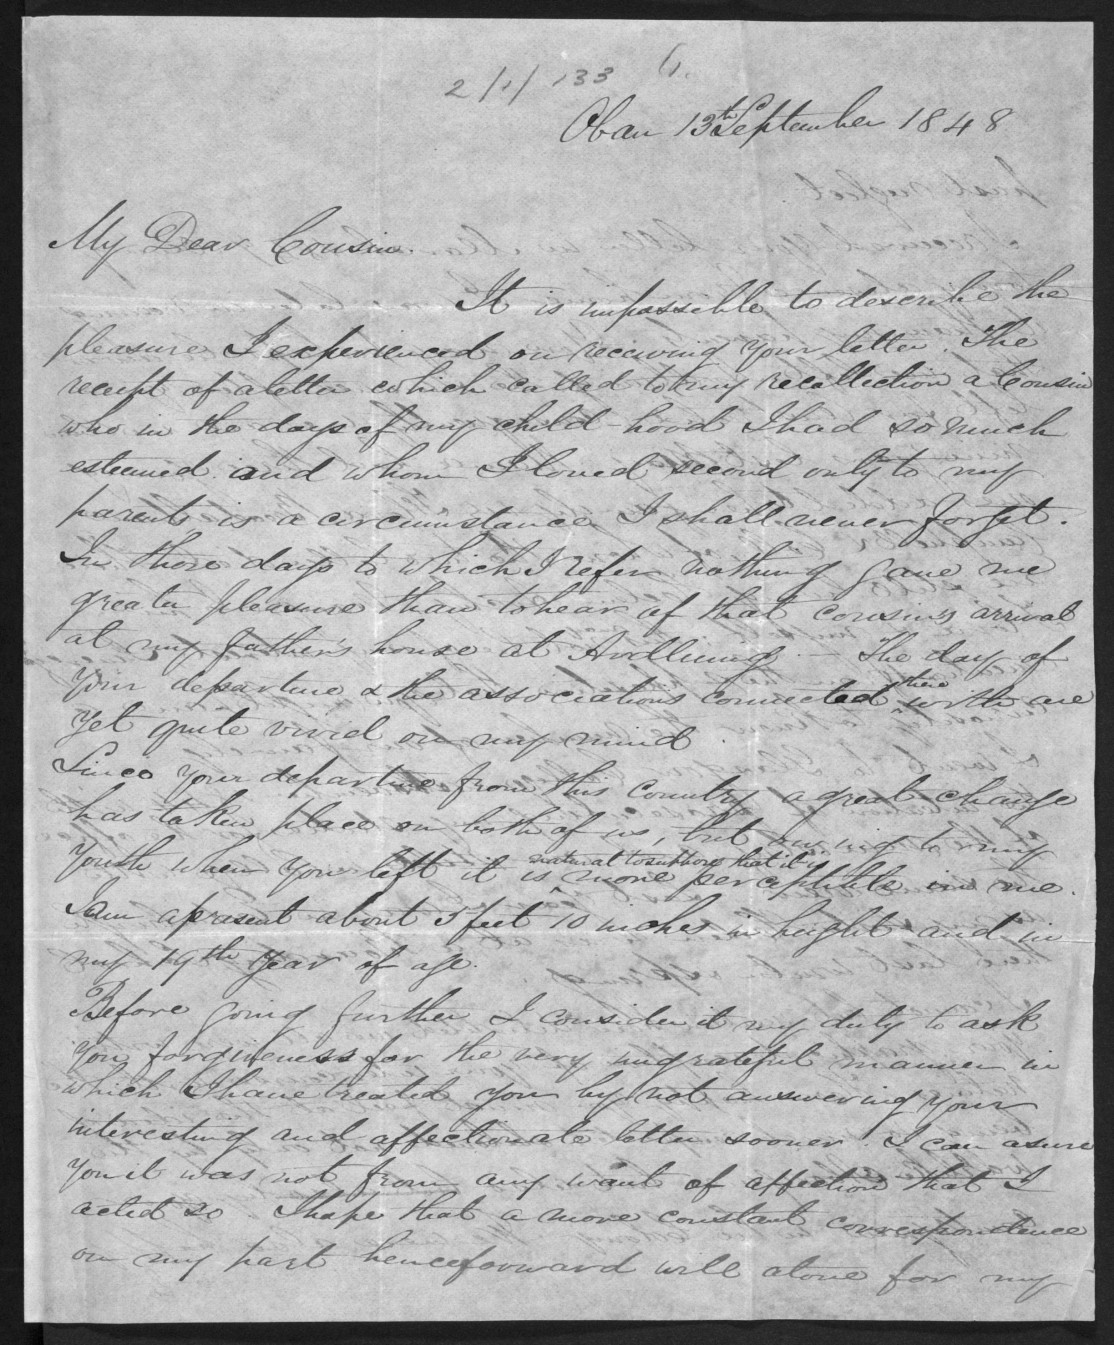 2/1/133 6.
Oban 13th September 1848
My Dear Cousin.
It is impossible to describe the
pleasure I experienced on receiving your letter. The
receipt of a letter which called to my recollection a Cousin
who in the days of my child-hood I had so much
esteemed and whom I loved second only to my
parents is a circumstance I shall never forget.
In those days to which I refer nothing gave me
greater pleasure than to hear of that cousin's arrival
at my father's house at – The day of
your departure & the associations connected there with are
yet quite vivid on my mind
Since your departure from this country a great change
has taken place on both of us, but owing to my
youth when you left it is natural to suppose that it is more perceptible in me.
I am apresent about 5 feet 10 inches in height and in
my 19th year of age.
Before going further I consider it my duty to ask
you forgiveness for the very ungrateful manner in
which I have treated you by not answering your
interesting and affectionate letter sooner. I can asure
you it was not from any want of affection that I
acted so. I hope that a more constant correspondence
on my part henceforward will atone for my